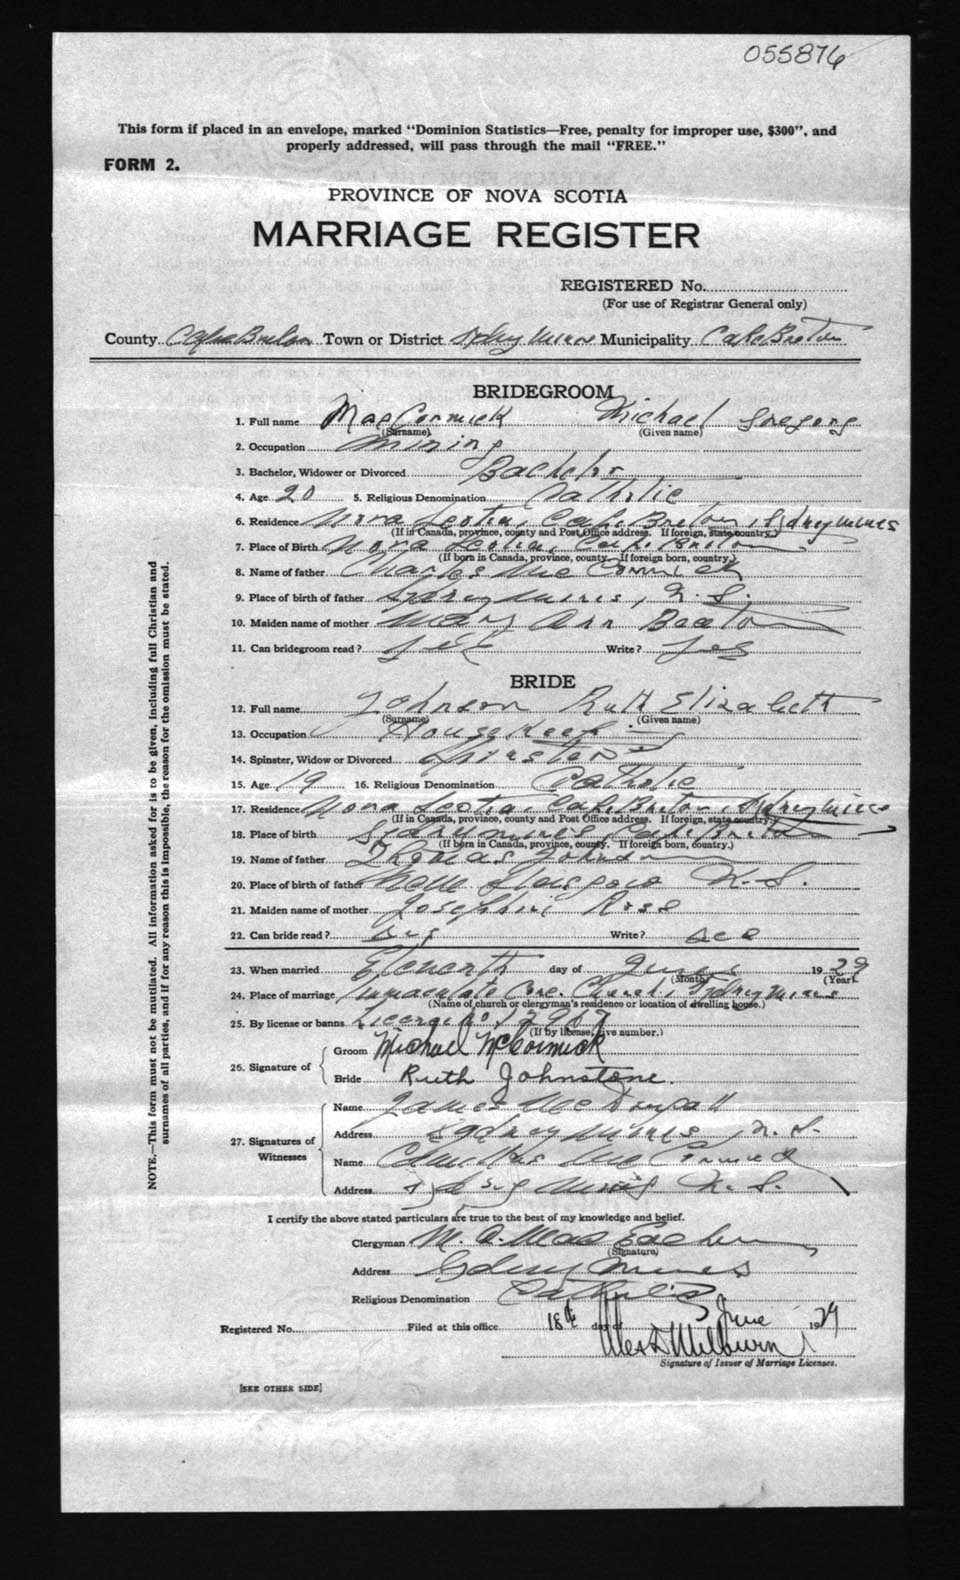 055876
This form if placed in an envelope, marked "Dominion Statistics—Free, penalty for improper use, $300", and
properly addressed, will pass through the mail "FREE."
FORM 2.
PROVINCE OF NOVA SCOTIA
MARRIAGE REGISTER
REGISTERED No.
(For use of Registrar General only)
County Cape Breton Town or District Sydney Mines Municipality Cape Breton
BRIDEGROOM
1. Full name MacCormick Michael Gregory
(Surname) (Given name)
2. Occupation Mining
3. Bachelor, Widower or Divorced Bachelor
4. Age 20 5. Religious Denomination Catholic
6. Residence Nova Scotia, Cape Breton, Sydney Mines
(If in Canada, province, county and Post Office address. If foreign, state country.)
7. Place of Birth Nova Scotia, Cape Breton
(If born in Canada, province, county. If foreign born, country.)
8. Name of father Charles McCormick
9. Place of birth of father Sydney Mines, N.S.
10. Maiden name of mother Mary Ann Beaton
11. Can bridegroom read? Yes Write? Yes
BRIDE
12. Full name Johnson Ruth Elizabeth
(Surname) (Given name)
13. Occupation Housekeeping
14. Spinster, Widow or Divorced Spinster
15. Age 19 16. Religious Denomination Catholic
17. Residence Nova Scotia, Cape Breton, Sydney Mines
(If in Canada, province, county and Post Office address. If foreign, state country.)
18. Place of birth Sydney Mines Cape Breton
(If born in Canada, province, county. If foreign born, country.)
19. Name of father Thomas Johnson
20. Place of birth of father New Glasgow N.S.
21. Maiden name of mother Josephine Ross
22. Can bride read? Yes Write? Yes
23. When married Eleventh day of June 1929
(Month) (Year)
24. Place of marriage Immaculate Conc. Church, Sydney Mines
(Name of church or clergyman's residence or location of dwelling house.)
25. By license or banns License No.
(If by license, give number.)
26. Signature of
Groom Michael McCormick
Bride Ruth Johnstone.
27. Signatures of Witnesses
Name James McDougall
Address Sydney Mines, N.S.
Name McCormick
Address Sydney Mines N.S.
I certify the above stated particulars are true to the best of my knowledge and belief.
Clergyman M. A. MacEachern
(Signature)
Address Sydney Mines
Religious Denomination Catholic
Registered No. Filed at this office 18th day of June 1929
Milburn
Signature of Issuer of Marriage Licenses.
[SEE OTHER SIDE]
NOTE.—This form must not be mutilated. All information asked for is to be given, including full Christian and
surnames of all parties, and if for any reason this is impossible, the reason for the omission must be stated.